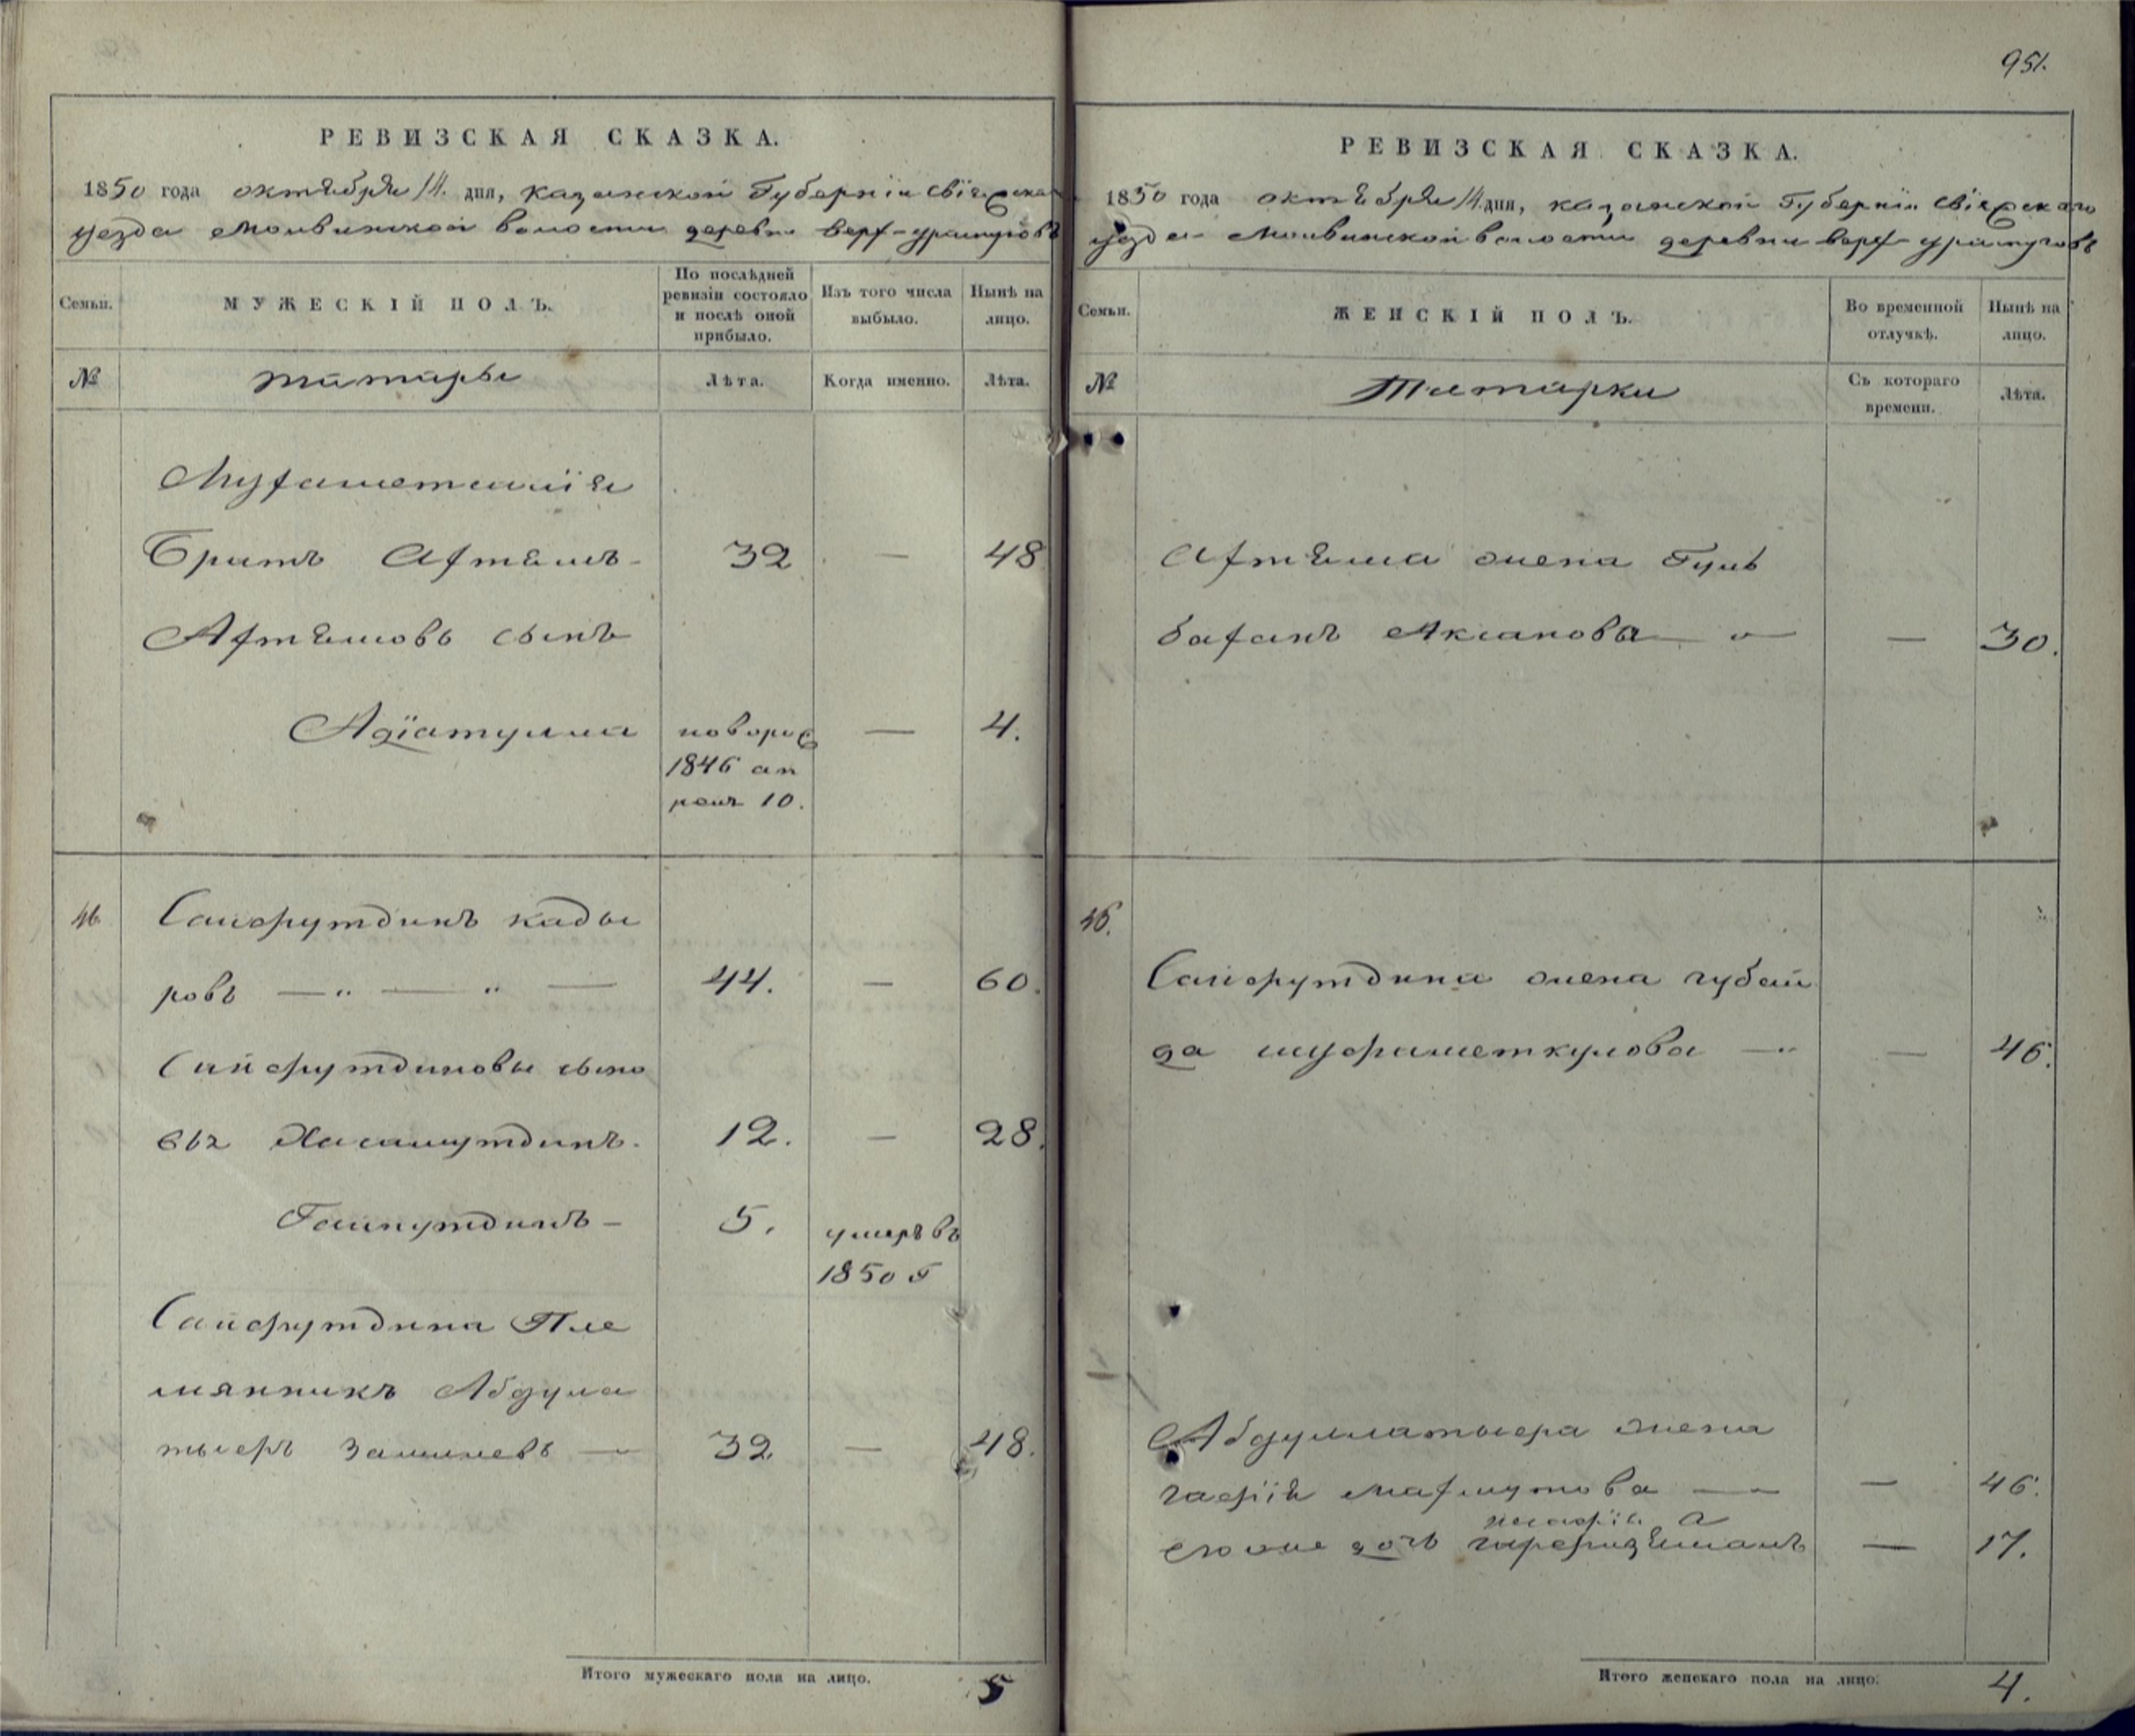 951.
РЕВИЗСКАЯ СКАЗКА.
1850 года октября 14. дня, казанской Губернiи свiяжска
уезда Молвинской волости деревни верх-ураспуговъ
Семьи.
МУЖЕСКІЙ ПОЛЪ.
По послѣдней ревизіи состояло и послѣ оной прибыло.
Изъ того числа выбыло.
Нынѣ на лицо.
№
татары
Лѣта.
Когда именно.
Лѣта.
Мухаметшiя
Братъ Ахтямъ 32 — 48
Ахтямовъ сынъ
Адiатулла новорож 1846 апреля 10. — 4.
46. Сайфутдинъ кады
ровъ — „ — „ — 44. — 60.
Сайфутдиновы сыно
вья Хисамутдинъ. 12. — 28.
Гайнутдинъ — 5. умеръ въ 1850 г
Сайфутдина Пле
мянникъ Абдулла
тыфъ — 32 — 48.
Итого мужескаго пола на лицо. 5
РЕВИЗСКАЯ СКАЗКА.
1850 года октября 14. дня, казанской Губернiи свiяжскаго
уезда Молвинской волости деревни верх-ураспуговъ
Семьи.
ЖЕНСКІЙ ПОЛЪ.
Во временной отлучкѣ.
Нынѣ на лицо.
№
Татарки
Съ котораго времени.
Лѣта.
Ахтяма жена Гуль
баханъ Аксанова — „ — — 30.
46.
Сайфутдина жена губай
да — „ — 46.
Абдуллатыфа жена
гафiя Махмутова — — 46.
ею же дочь — 17.
Итого женскаго пола на лицо: 4.